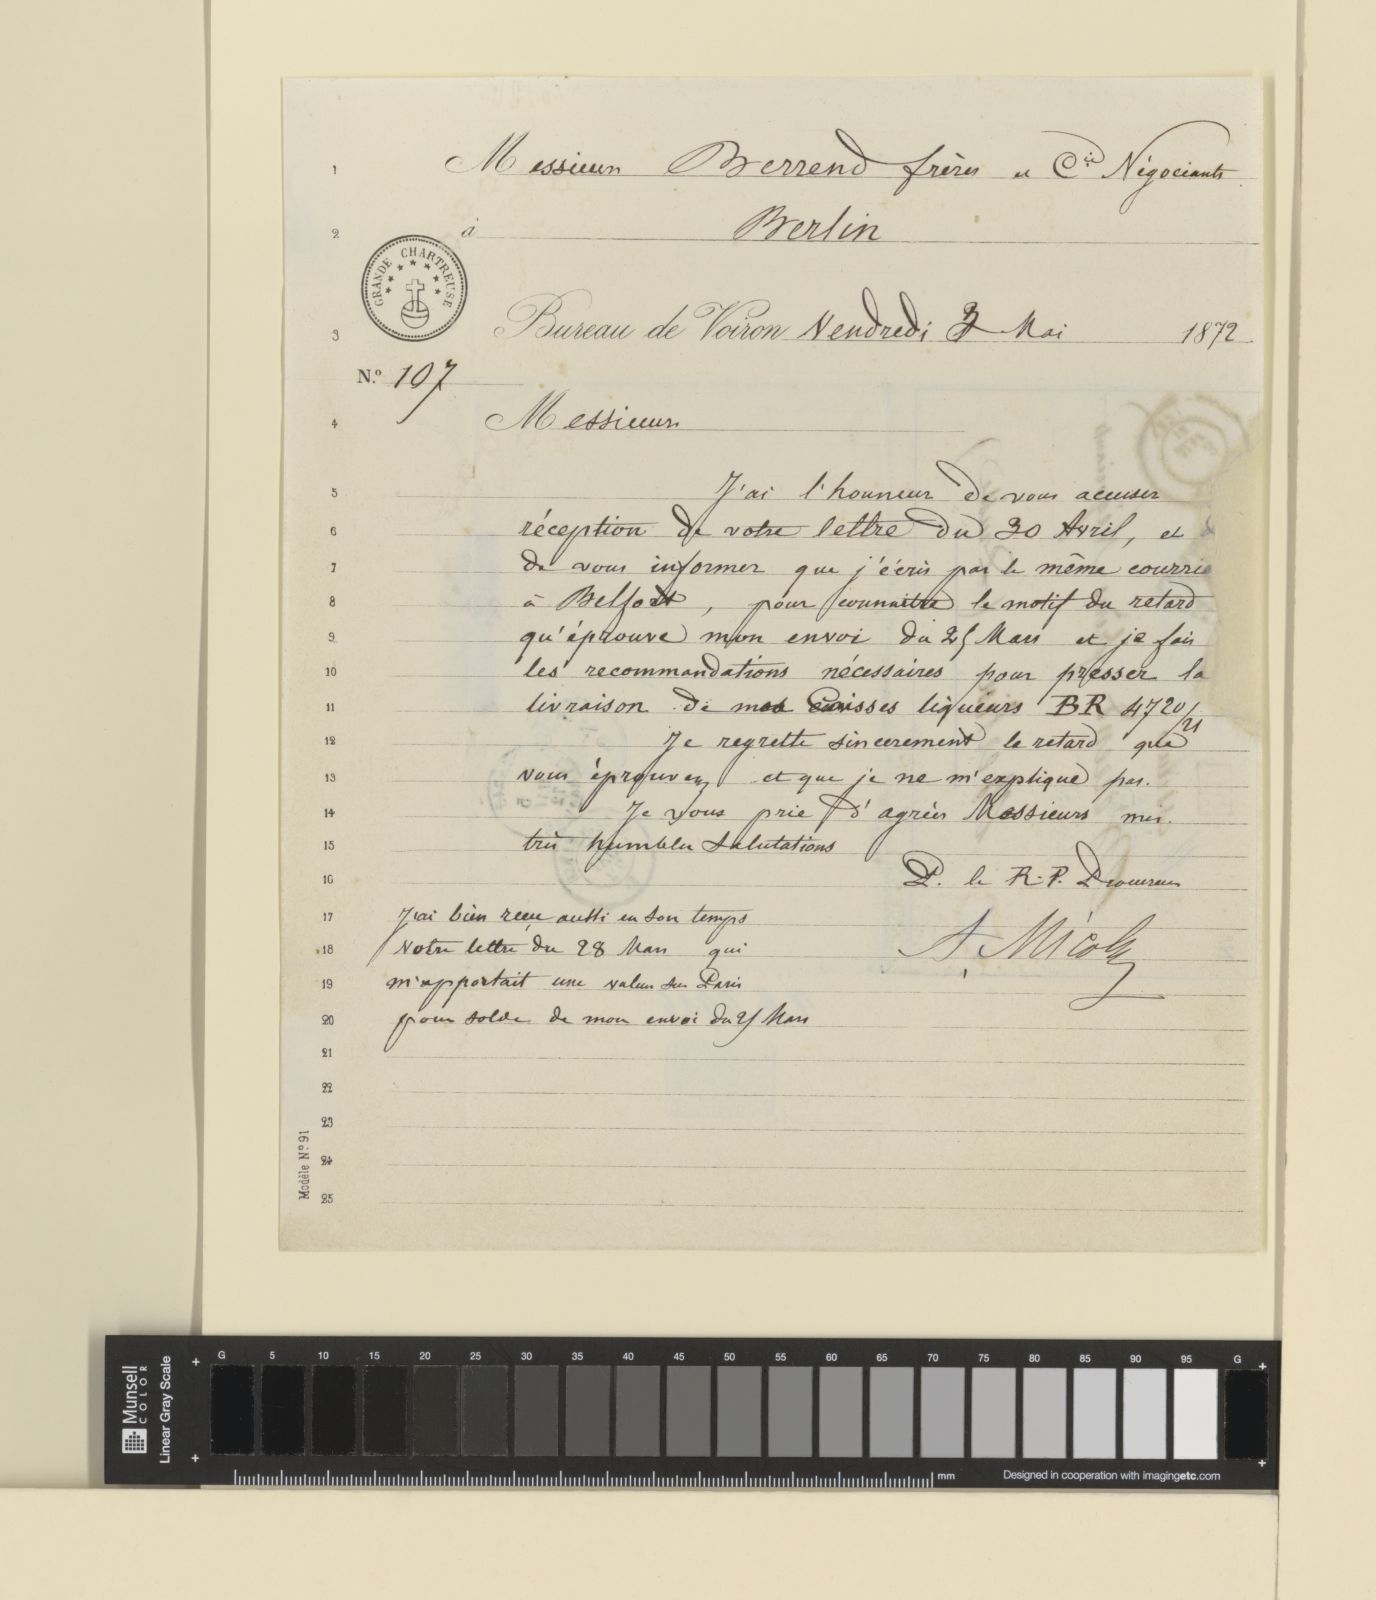 1 Messieurs Berrend frères et Cie Négociants
2 à Berlin
GRANDE CHARTREUSE
3 Bureau de Voiron Vendredi 3 Mai 1872
N.o 107
4 Messieurs
5 J'ai l'honneur de vous accuser
6 réception de votre lettre du 30 Avril, et d
7 de vous informer que j'écris par le même courrie
8 à Belfort, pour connaitre le motif du retard
9 qu'éprouve mon envoi du 25 Mars et je fais
10 les recommandations nécessaires pour presser la
11 livraison de mes Caisses liqueurs BR 4720/21
12 Je regrette sincerement le retard que
13 vous éprouvez et que je ne m'explique pas.
14 Je vous prie d'agréer Messieurs mes
15 très humbles salutations
16 P. le R. P. Procureur
17 J'ai bien reçu aussi en son temps
18 votre lettre du 28 Mars qui
A. Nicolas
19 m'apportait une valeur sur Paris
20 pour solde de mon envoi du 25 Mars
21
22
23
24
25
Modèle N.o 91
Munsell COLOR
Linear Gray Scale
G 5 10 15 20 25 30 35 40 45 50 55 60 65 70 75 80 85 90 95 G
mm
Designed in cooperation with imagingetc.com